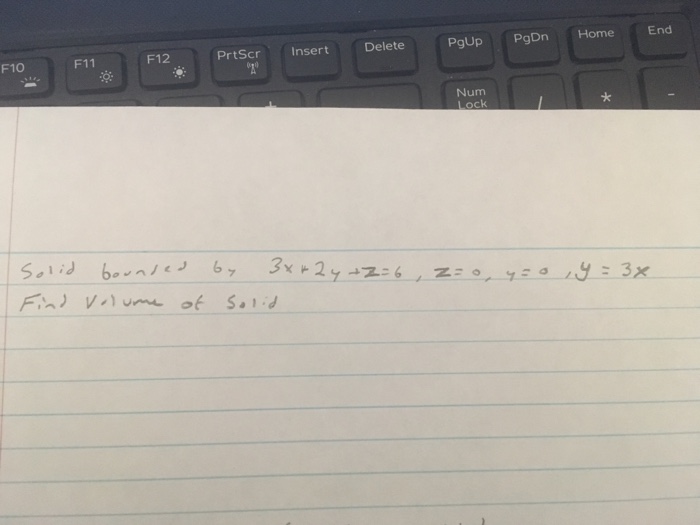 F10 F11 F12 PrtScr Insert Delete PgUp PgDn Home End
Num Lock / * -
Solid bounded by 3x+2y+z=6, z=0, y=0, y=3x
Find Volume of Solid